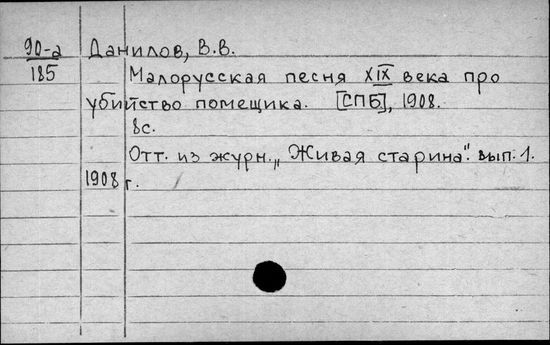 90-а Данилов, В.В.
185
Малорусская песня XIX века про
убийство помещика. [СПБ], 1908.
8с.
Отт. из журн. „Живая старина". вып. 1.
1908 г.